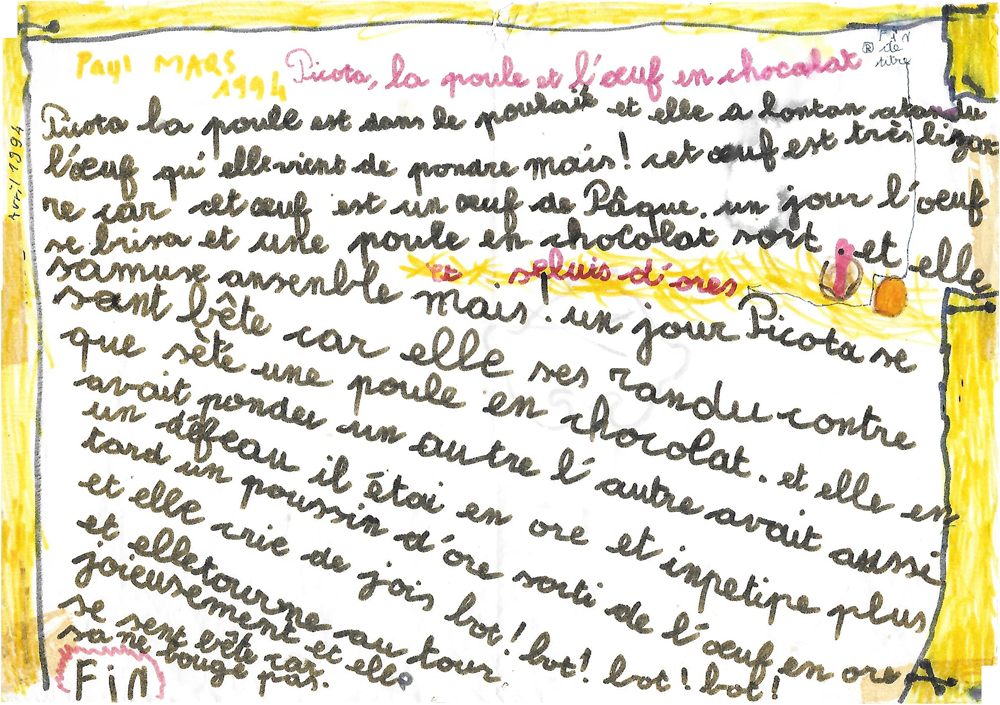 Paul MARS
1994
Picota, la poule et l'œuf en chocalat
® FIN
de
titre
Avril 1994
Picota la poule est dans le poulait et elle a lontan atandu
l'œuf qu'elle vient de pondre mais! cet œuf est très bizar
re car cet œuf est un œuf de Pâque. un jour l'œuf
se brisa et une poule en chocolat sort et elle
et seluis d'ores
samuse ansenble mais! un jour Picota se
sant bête car elle ses randu contre
que sète une poule en chocolat. et elle en
avait pondeu un autre l'autre avait aussi
un défeau il étai en ore et inpetipe plus
tard un poussin d'ore sorti de l'œuf en ore
et elle crie de jois bot! bot! bot! bot!
et elle tourne au tour
joieusement et elle
se sent bête car
sa ne bouge pas.
Fin